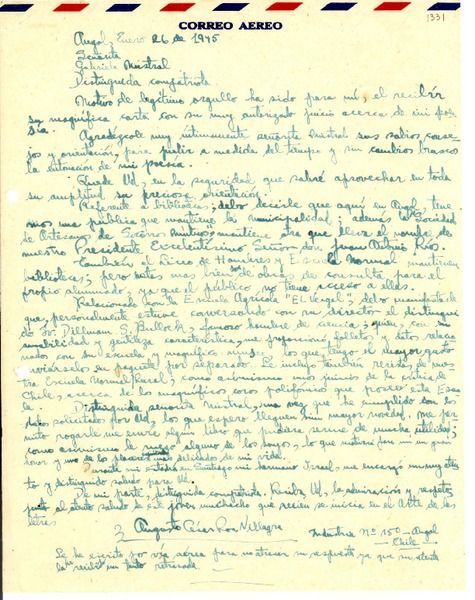 CORREO AEREO
1331
Angol, Enero 26 de 1945
Señorita
Gabriela Mistral
Distinguida compatriota
Motivo de legítimo orgullo ha sido para mí, el recibir
su magnífica carta con su muy autorizado juicio acerca de mi poe-
sía.
Agradézcole muy íntimamente señorita Mistral sus sabios conse-
jos y orientación, para pulir a medida del tiempo y sin cambios brusco
la entonación de mi poesía.
Quede Ud, en la seguridad que sabré aprovechar en toda
su amplitud su preciosa orientación.
Referente a bibliotecas; debo decirle que aquí en Angol, tene
mos una pública que mantiene la municipalidad; además la Sociedad
de Artesanos de Socorros Mutuos, mantiene otra que lleva el nombre de
nuestro Presidente Excelentísimo Señor don Juan Antonio Ríos.
También, el Liceo de Hombres y Escuela Normal mantienen
bibliotecas; pero estas mas bien de obras de consulta para el
propio alumnado, ya que el público, no tiene acceso a ellas.
Relacionado con la Escuela Agrícola "EL Vergel", debo manifestarle
que, personalmente estuve conversando con su director el distingui
do Dr. Dillman S. Bullock, famoso hombre de ciencia; quien, con su
amabilidad y gentileza característica, me proporcionó folletos y datos relacio
nados con su escuela y magnífico museo, los que tengo el mayor agrado
enviárselos en paquete por separado. Le incluyo también revista de nues
tra Escuela Normal Rural, como asimismo unos juicios de la crítica de
Chile, acerca de los magníficos coros polifónicos que posee esta Escue
la.
Distinguida señorita Mistral, una vez que he cumplido con los
datos solicitados por Ud, los que espero lleguen sin mayor novedad, me per
mito rogarle me envíe algún libro que pudiera serme de mucha utilidad;
como asimismo le ruego alguno de los suyos, lo que motivará por un gran
honor y uno de los placeres más delicados de mi vida.
Durante mi estadía en Santiago mi hermano Israel, me encargó un muy aten
to y distinguido saludo para Ud.
De mi parte, distinguida compatriota. Reciba Ud, la admiración y respeto
junto al atento saludo de este joven muchacho que recien se inicia en el Arte de las
letras.
Augusto César Roa Villagra
Nº 150 - Angol
Chile
Le he escrito por vía aérea para no atrasar mi respuesta ya que su atenta
la he recibido un tanto retrasada.